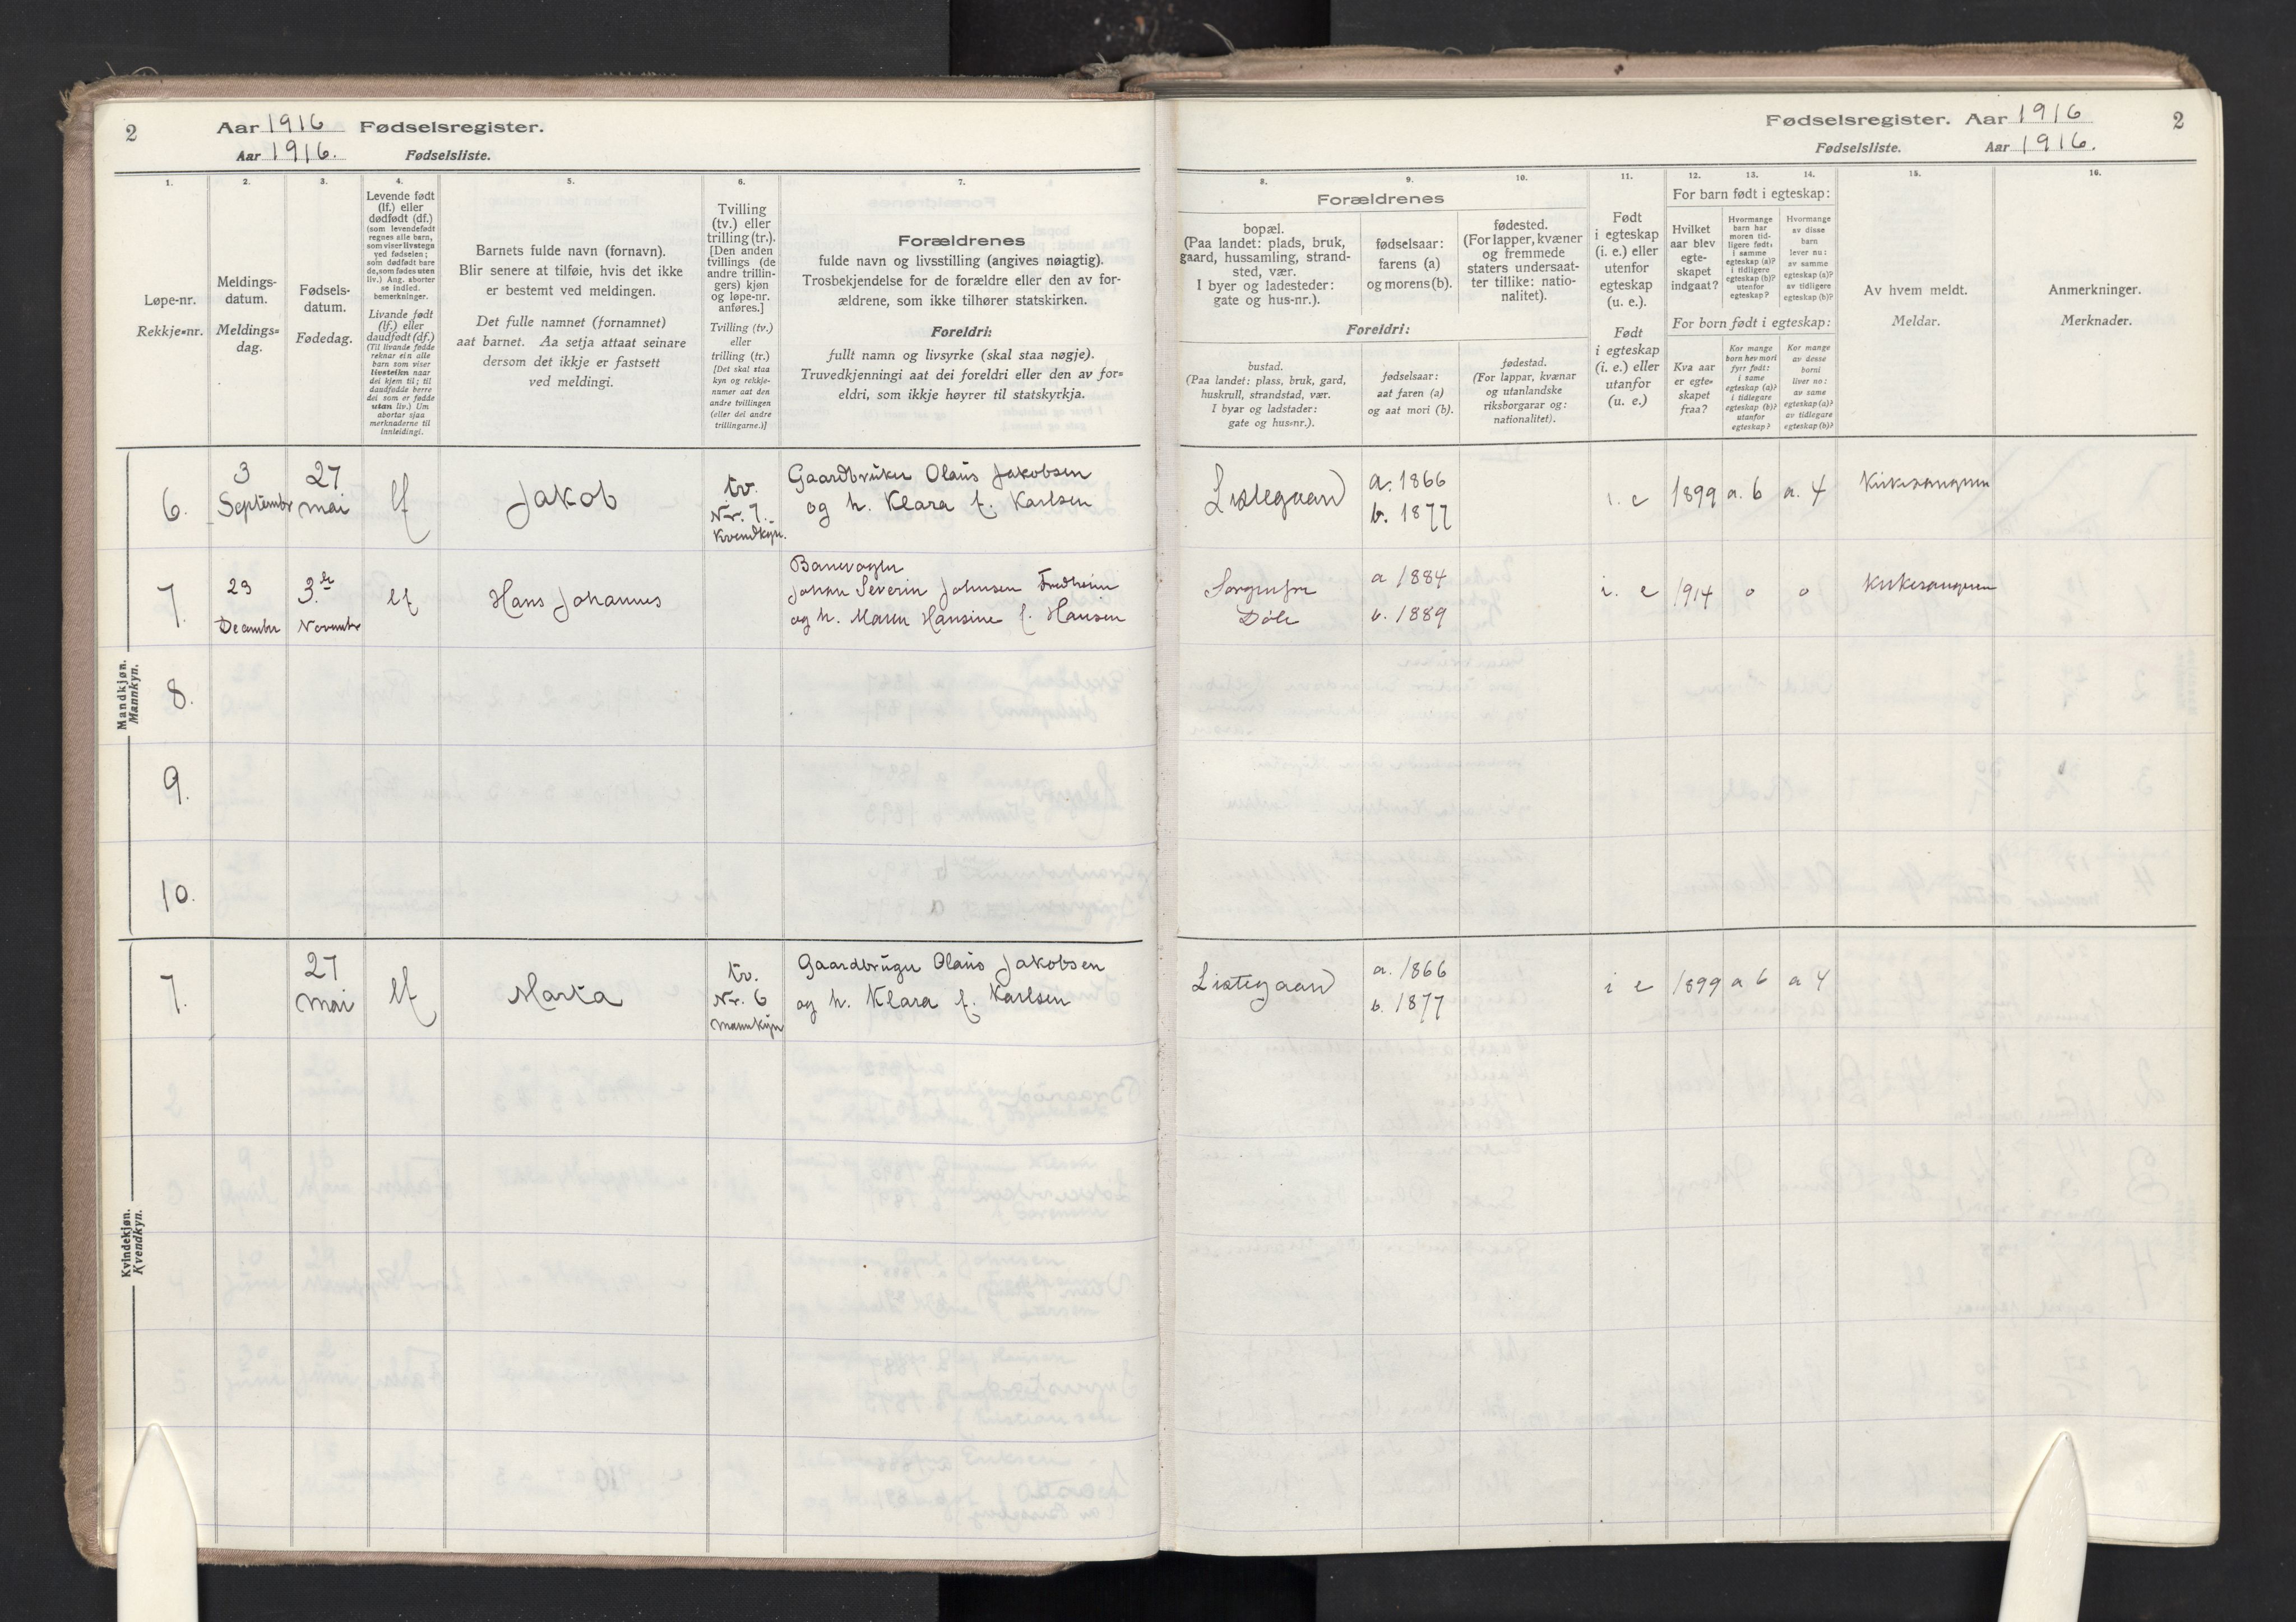 2
Aar 1916 Fødselsregister.
Aar 1916. Fødselsliste.
1.
2.
3.
4.
5.
6.
7.
Løpe-nr.
Rekkje=nr.
Meldings-
datum.
Meldings=
dag.
Fødsels-
datum.
Fødedag.
Levende født
(lf.) eller
dødfødt (df.)
(som levendefødt
regnes alle barn,
som viser livstegn
ved fødselen;
som dødfødt bare
de, som fødes uten
liv.) Ang. aborter
se indled.
bemerkninger.
Livande født
(lf.) eller
daudfødt (df.)
(Til livande fødde
reknar ein alle
barn som viser
livsteikn naar
dei kjem til; til
daudfødde berre
dei som er fødde
utan liv.) Um
abortar sjaa
merknaderne til
innleidingi.
Barnets fulde navn (fornavn).
Blir senere at tilføie, hvis det ikke
er bestemt ved meldingen.
Det fulle namnet (fornamnet)
aat barnet. Aa setja attaat seinare
dersom det ikkje er fastsett
ved meldingi.
Tvilling
(tv.) eller
trilling (tr.).
[Den anden
tvillings (de
andre trillin-
gers) kjøn
og løpe-nr.
anføres.]
Tvilling (tv.)
eller
trilling (tr.)
[Det skal staa
kyn og rekkje-
numer aat den
andre tvillingen
(eller dei andre
trillingarne.)]
Forældrenes
fulde navn og livsstilling (angives nøiagtig).
Trosbekjendelse for de forældre eller den av for-
ældrene, som ikke tilhører statskirken.
Foreldri:
fullt namn og livsyrke (skal staa nøgje).
Truvedkjenningi aat dei foreldri eller den av for=
eldri, som ikkje høyrer til statskyrkja.
Mandkjøn.
Mannkyn.
6.
3
Septembr
27
mai
lf
Jakob
tv.
Nr. 7.
Kvendkjn.
Gaardbruker Olaus Jakobsen
og h. Klara f. Karlsen
7.
29
Decembr
3.
Novembr
lf
Hans Johannes
Banevogter
Johan Severin Johnsen Fredheim
og h. Maren Hansine f. Hansen
8.
9.
10.
Kvindekjøn.
Kvendkyn.
7.
27
mai
lf
Marta
tv.
Nr. 6
mannkjn
Gaardbruger Olaus Jakobsen
og h. Klara f. Karlsen
Fødselsregister. Aar 1916
2
Fødselsliste. Aar 1916.
8.
9.
10.
11.
12.
13.
14.
15.
16.
Forældrenes
bopæl.
(Paa landet: plads, bruk,
gaard, hussamling, strand-
sted, vær.
I byer og ladesteder:
gate og hus-nr.).
fødselsaar:
farens (a)
og morens (b).
fødested.
(For lapper, kvæner
og fremmede
staters undersaat-
ter tillike: natio-
nalitet).
Foreldri:
bustad.
(Paa landet: plass, bruk, gard,
huskrull, strandstad, vær.
I byar og ladstader:
gate og hus=nr.).
fødselsaar:
aat faren (a)
og aat mori (b).
fødestad.
(For lappar, kvænar
og utanlandske
riksborgarar og:
nationalitet).
Født
i egteskap
(i. e.) eller
utenfor
egteskap
(u. e.).
Født
i egteskap
(i. e.) eller
utanfor
(u. e.)
For barn født i egteskap:
Hvilket
aar blev
egte-
skapet
indgaat?
Hvormange
barn har
moren tid-
ligere født:
i samme
egteskap (a)?
i tidligere
egteskap (b)?
utenfor
egteskap?
Hvormange
av disse
barn
lever nu:
av samme
egteskap (a)?
av tidligere
egteskap (b)?
For born født i egteskap:
Kva aar
er egte=
skapet
fraa?
Kor mange
born hev mori
fyrr født:
i same
egteskap (a)?
i tidlegare
egteskap (b)?
utanfor
egteskap?
Kor mange
av desse
borni
liver no:
av same
egteskap (a)?
av tidlegare
egteskap (b)?
Av hvem meldt.
Meldar.
Anmerkninger.
Merknader.
Listegaard
a. 1866
b. 1877
i. e
1899
a. 6
a. 4
Kirkesangeren
Sorgenfri
Døle
a 1884
b. 1889
i. e
1914
0
0
Kirkesangeren
Listegaard
a. 1866
b. 1877
i e
1899
a 6
a 4